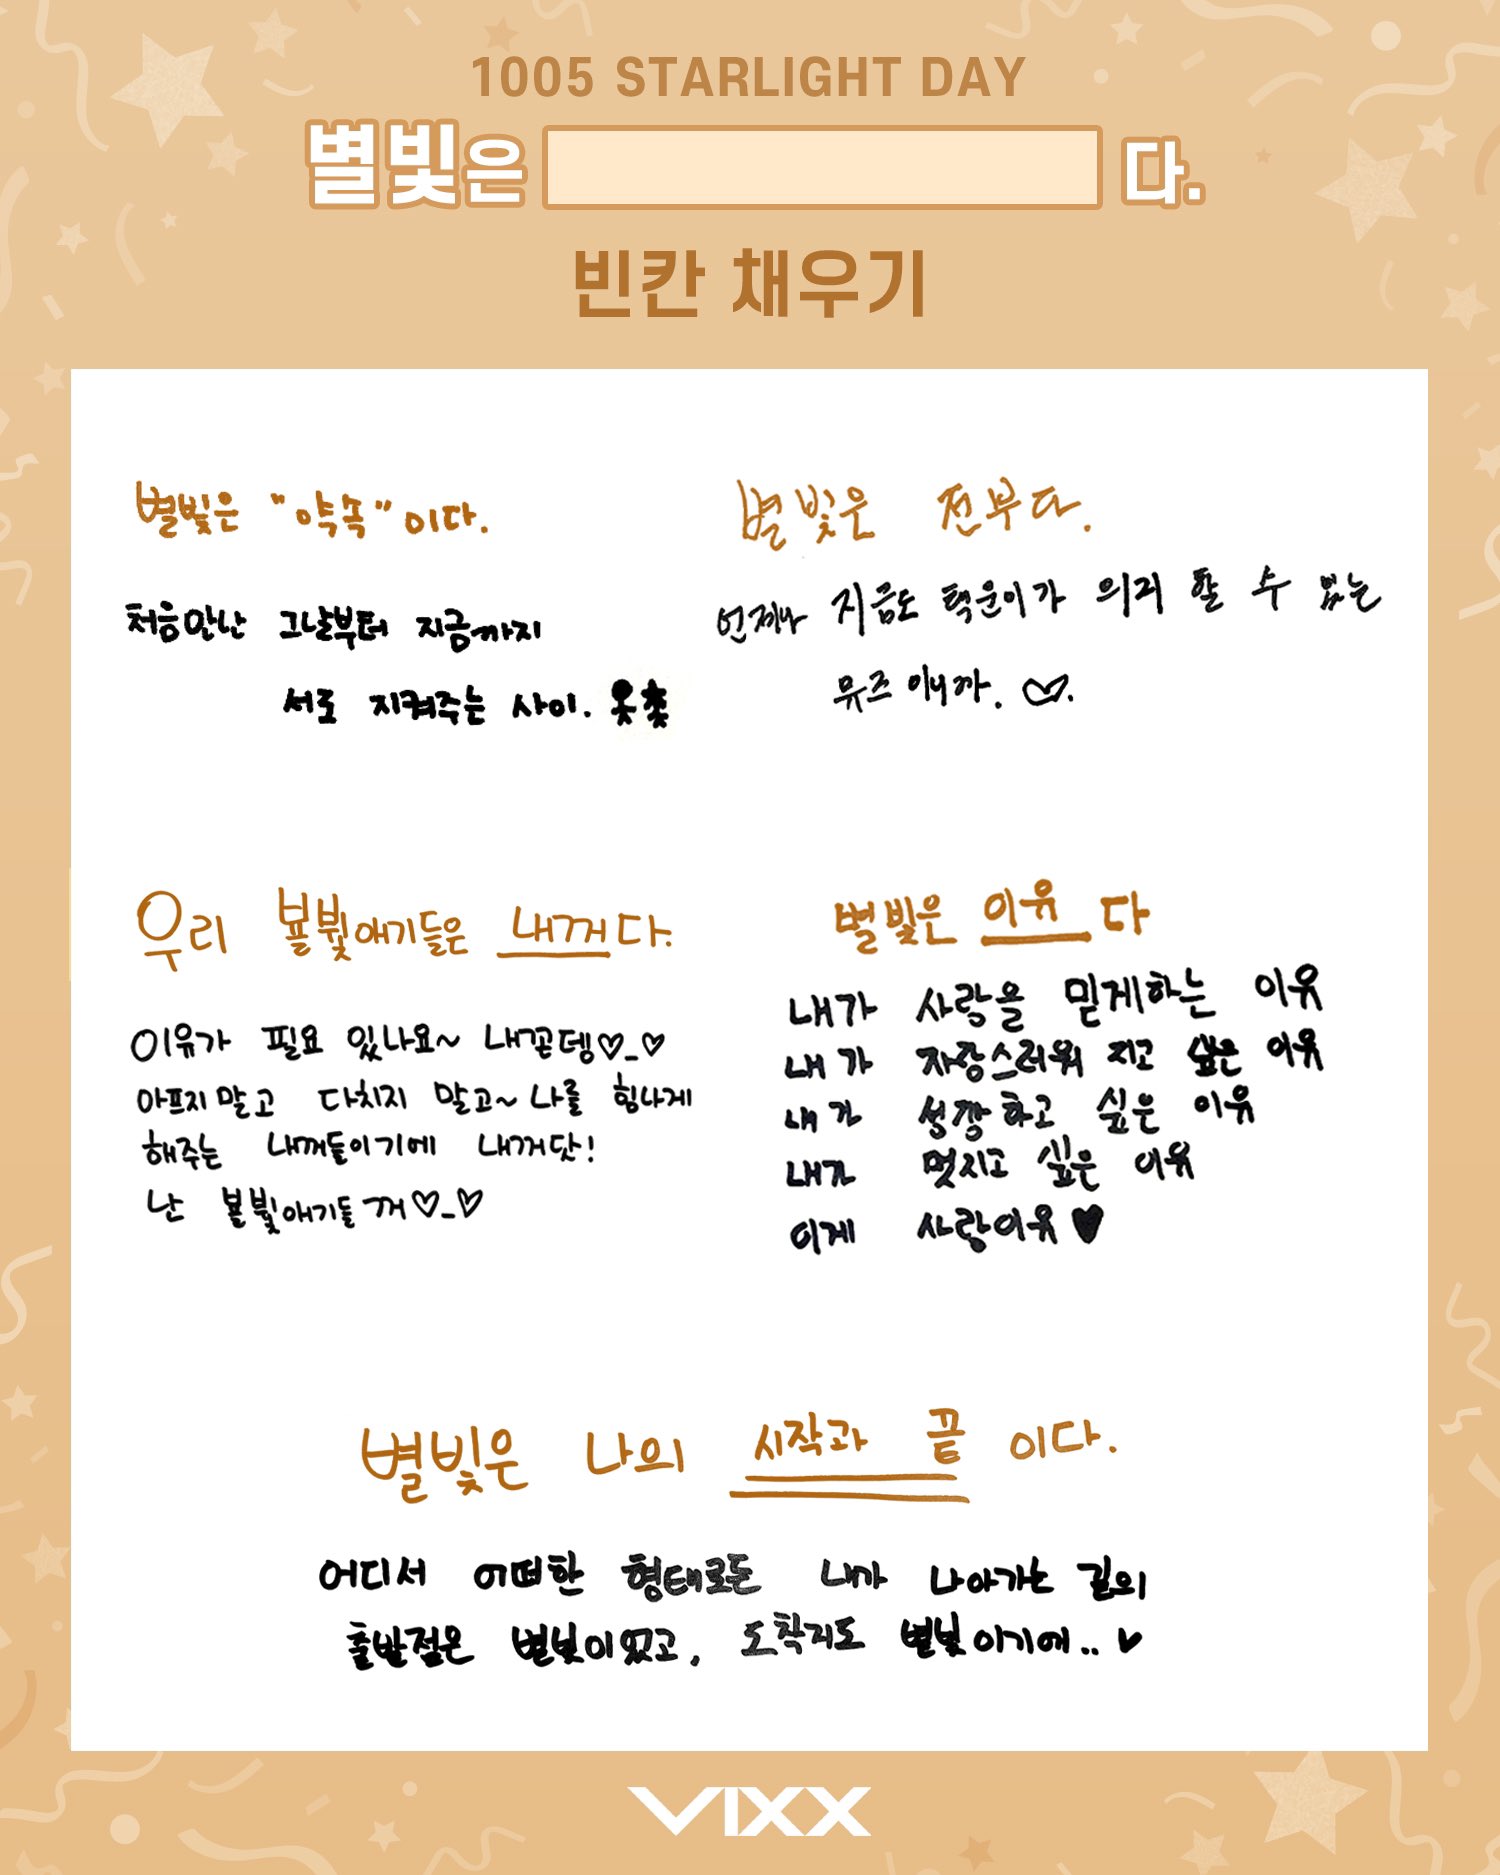 1005 STARLIGHT DAY
별빛은 다.
빈칸 채우기
별빛은 "약속"이다.
처음만난 그날부터 지금까지
서로 지켜주는 사이.
별빛은 전부다.
언제나 지금도 택운이가 의리 할 수 있는
뮤즈이니까. ♡.
우리 뵬뷫애기들은 내꺼다.
이유가 필요 있나요~ 내꼰뎅♡_♡
아프지말고 다치지 말고~ 나를 힘나게
해주는 내꺼들이기에 내꺼닷!
난 뵬뷫애기들꺼♡_♡
별빛은 이유다
내가 사랑을 믿게하는 이유
내가 자랑스러워 지고 싶은 이유
내가 성장하고 싶은 이유
내가 멋지고 싶은 이유
이게 사랑이유♥
별빛은 나의 시작과 끝이다.
어디서 어떠한 형태로든 내가 나아가는 길의
출발점은 별빛이었고, 도착지도 별빛이기에..♥
VIXX